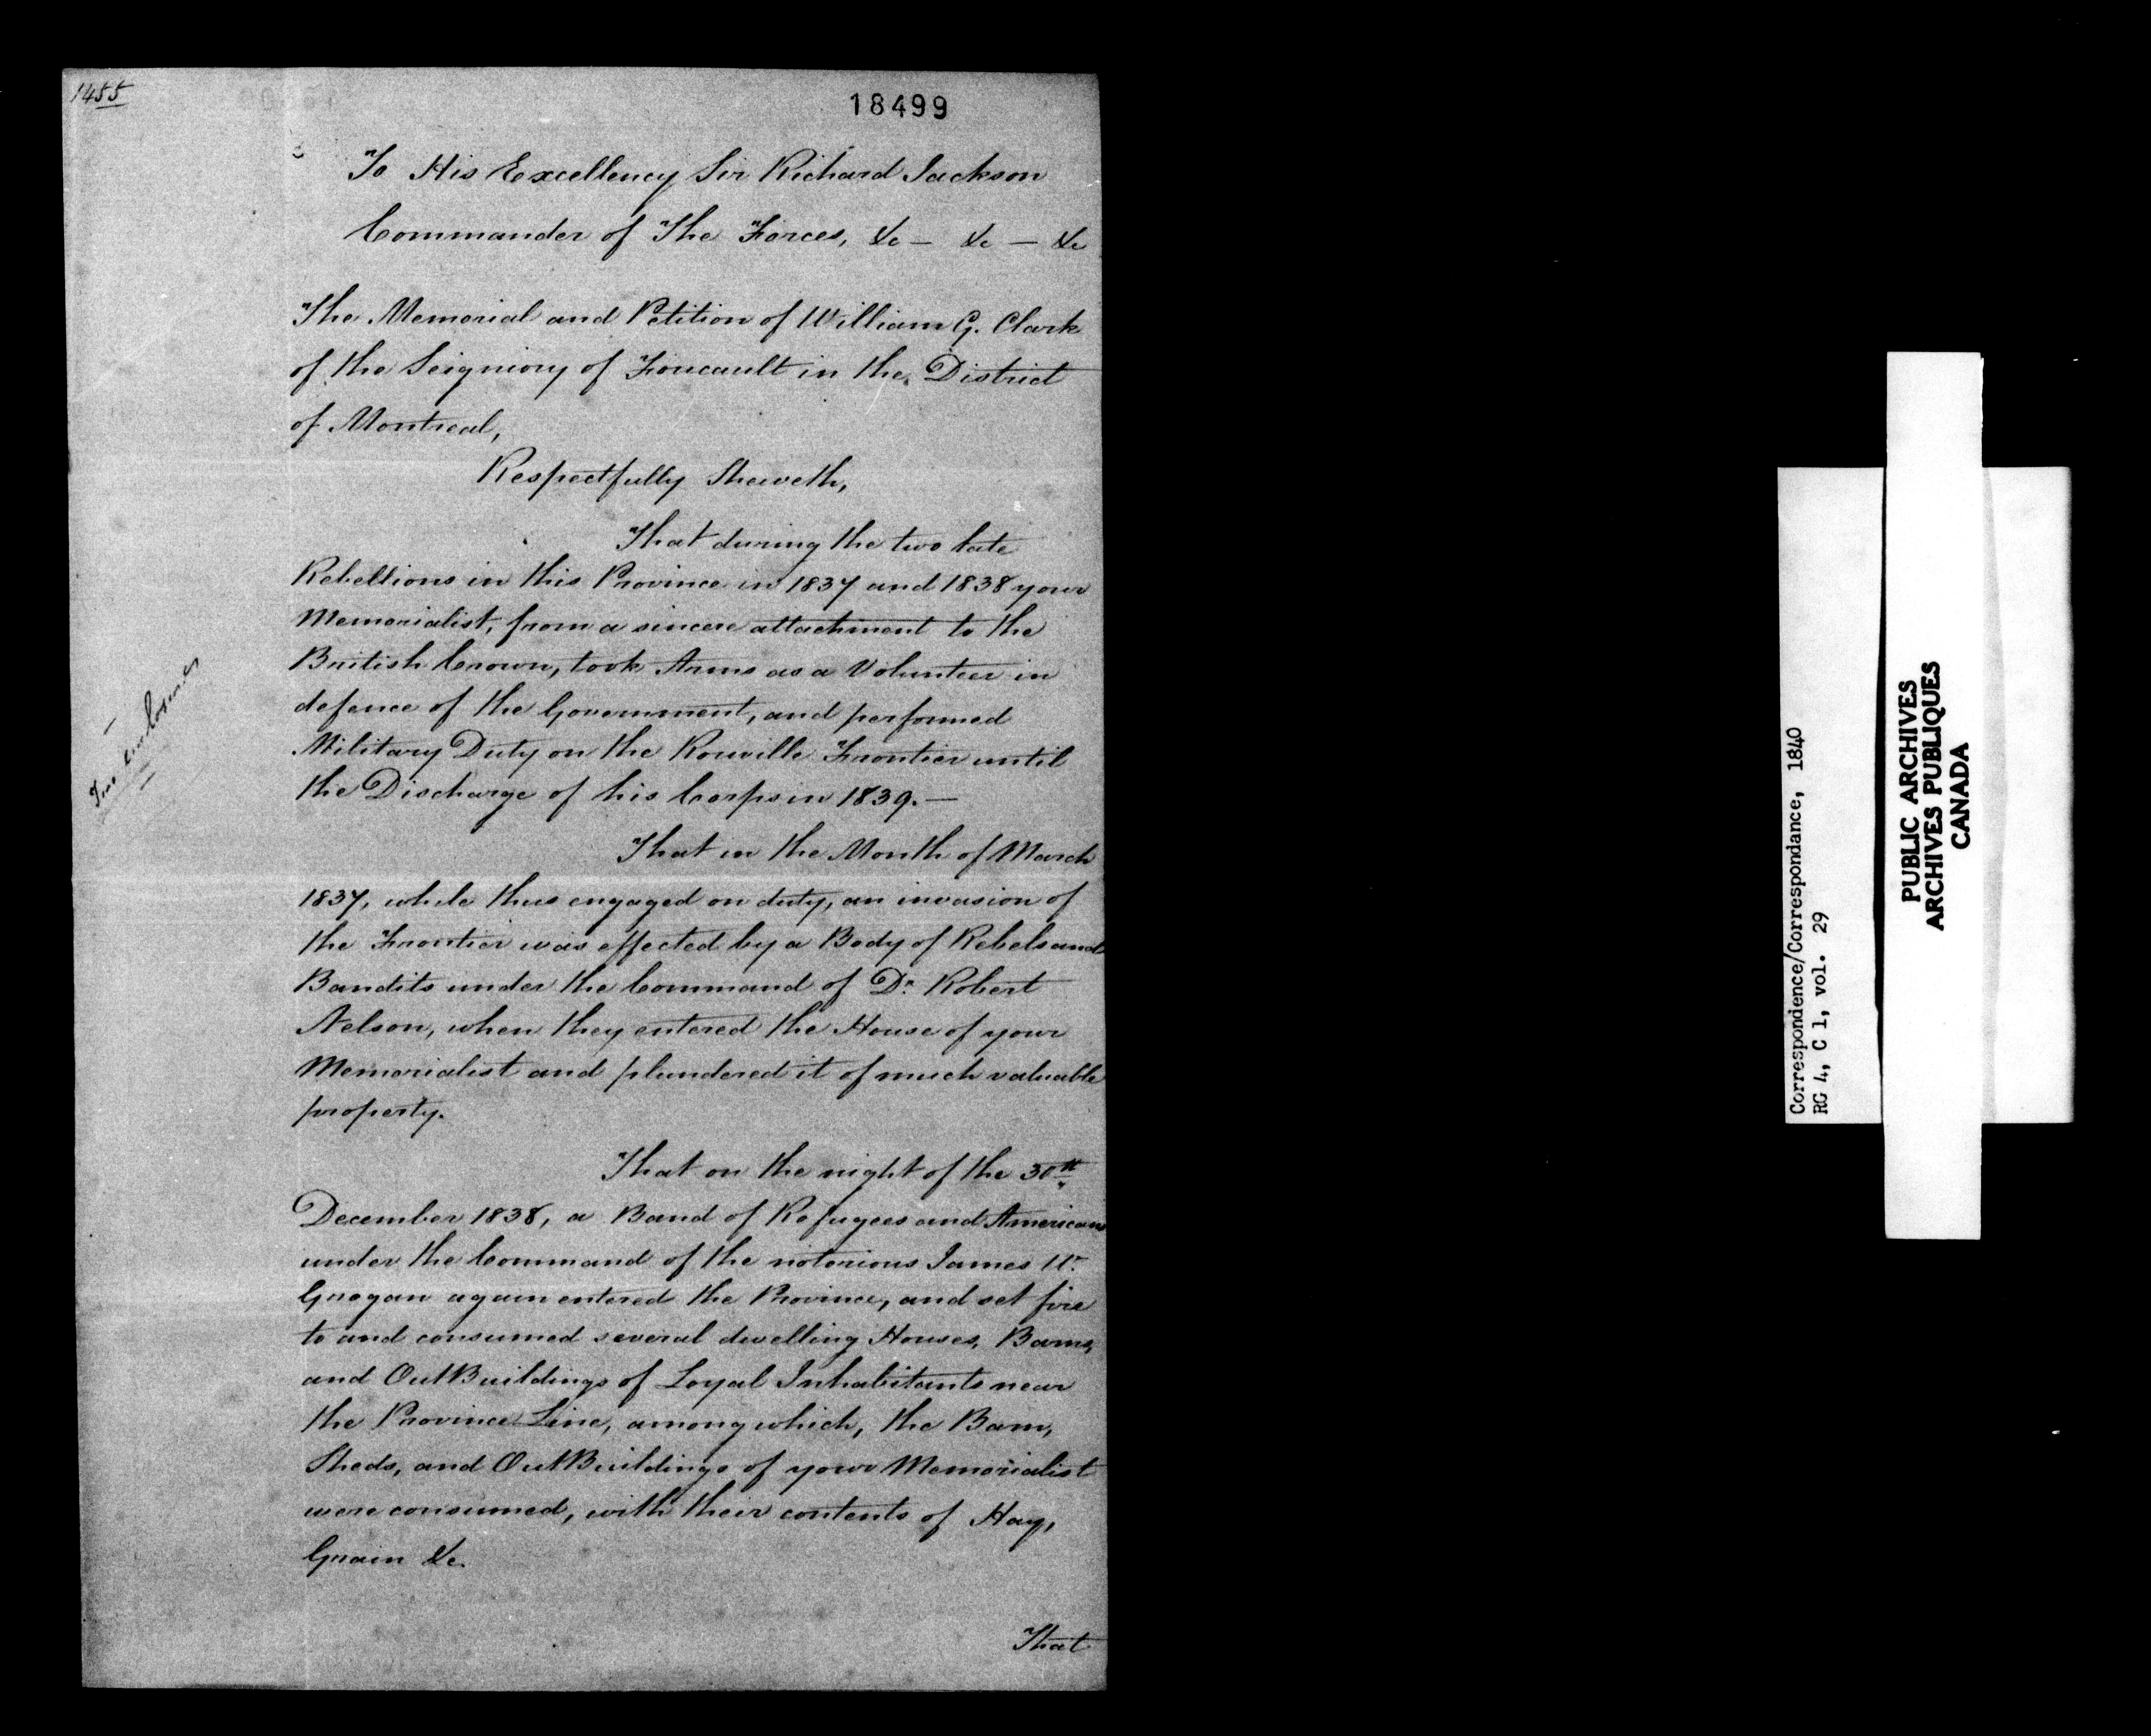 1455
18499
To His Excellency Sir Richard Jackson
Commander of The Forces, &c — &c — &c
The Memorial and Petition of William G. Clark
of the Seigniory of Foucault in the District
of Montreal,
Respectfully Sheweth,
That during the two late
Rebellions in this Province in 1837 and 1838 your
Memorialist, from a sincere attachment to the
British Crown, took Arms as a Volunteer in
defence of the Government, and performed
Military Duty on the Rouville Frontier until
the Discharge of his Corps in 1839.—
That in the Month of March
1837, while thus engaged on duty, an invasion of
the Frontier was effected by a Body of Rebels and
Bandits under the Command of Dr. Robert
Nelson, when they entered the House of your
Memorialist and plundered it of much valuable
property.
That on the night of the 30th
December 1838, a Band of Refugees and Americans
under the Command of the notorious James W.
Grogan again entered the Province, and set fire
to and consumed several dwelling Houses, Barns,
and OutBuildings of Loyal Inhabitants near
the Province Line, among which, the Barn,
Sheds, and OutBuildings of your Memorialist
were consumed, with their contents of Hay,
Grain &c.
That
Correspondence/Correspondance, 1840
RG 4, C 1, vol. 29
PUBLIC ARCHIVES
ARCHIVES PUBLIQUES
CANADA